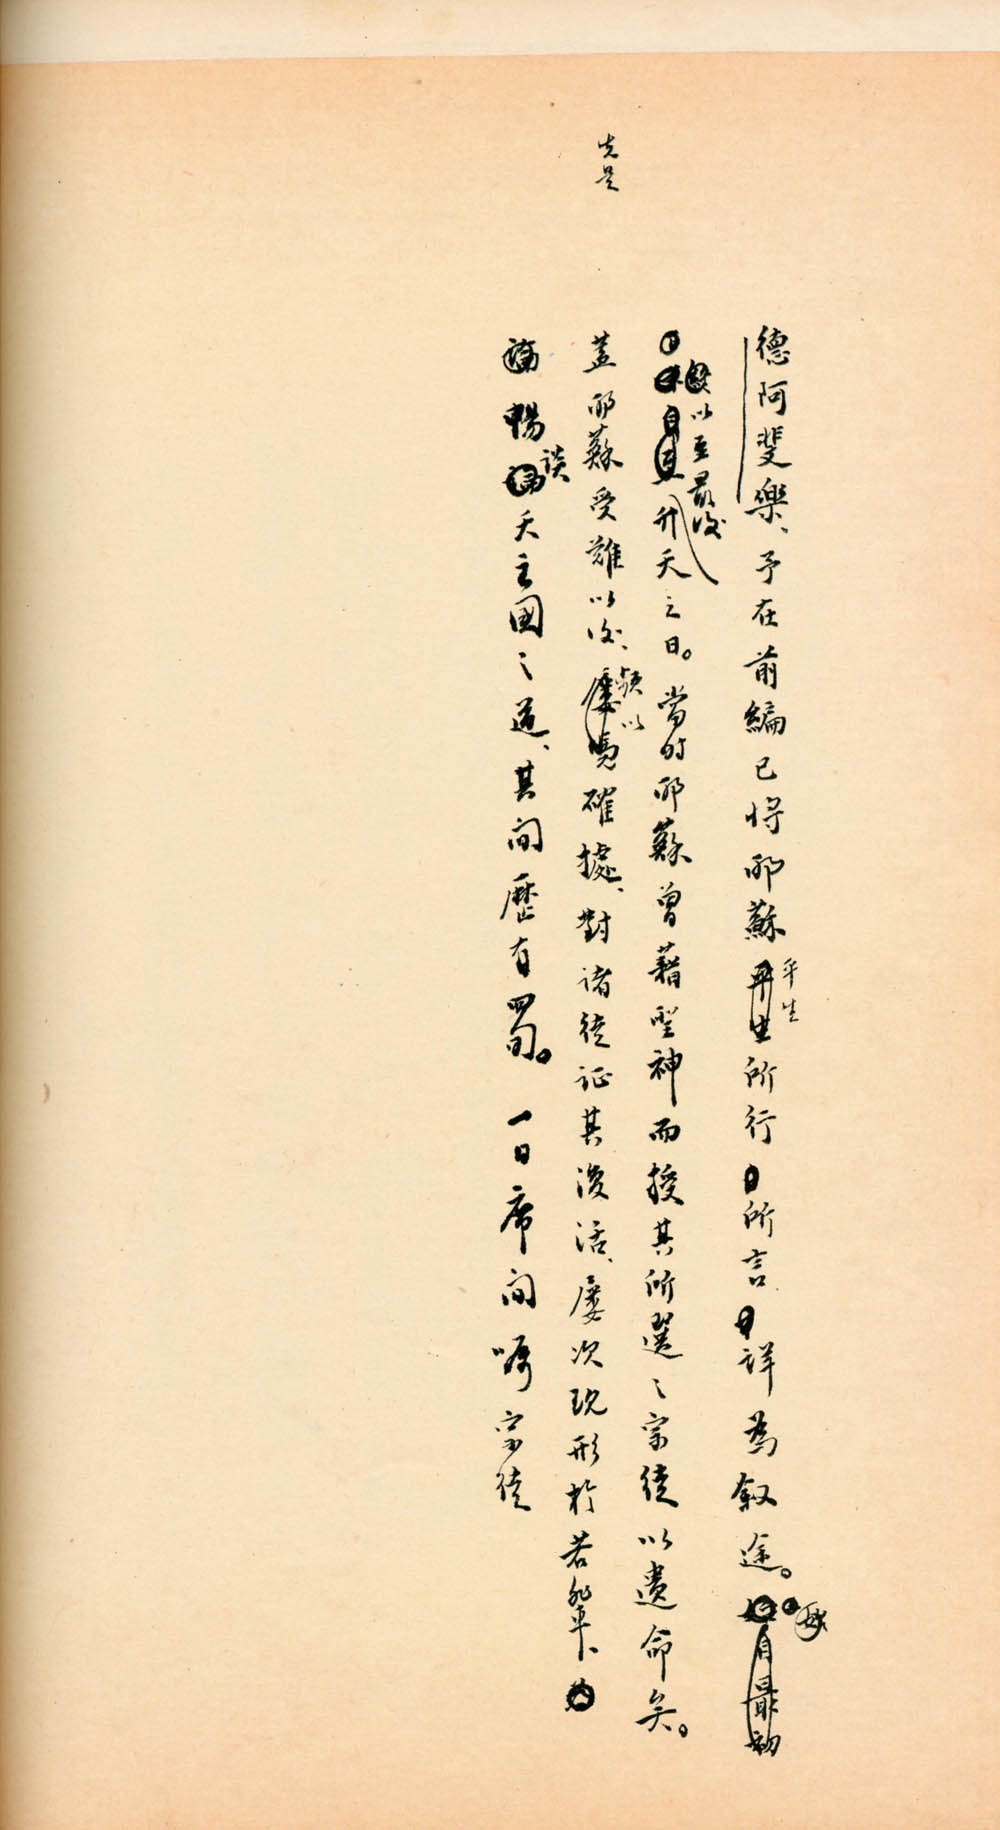 先是
德阿斐樂、予在前編已將耶蘇平生所行所言詳為敘途。自最初
以至最後升天之日。當時耶蘇曾藉聖神而授其所選之宗徒以遺命矣。
蓋耶蘇受難以後、頻以確據、對諸徒証其復活、屢次現形於若輩、
暢談天主國之道、其間歷有四旬。一日席間囑宗徒